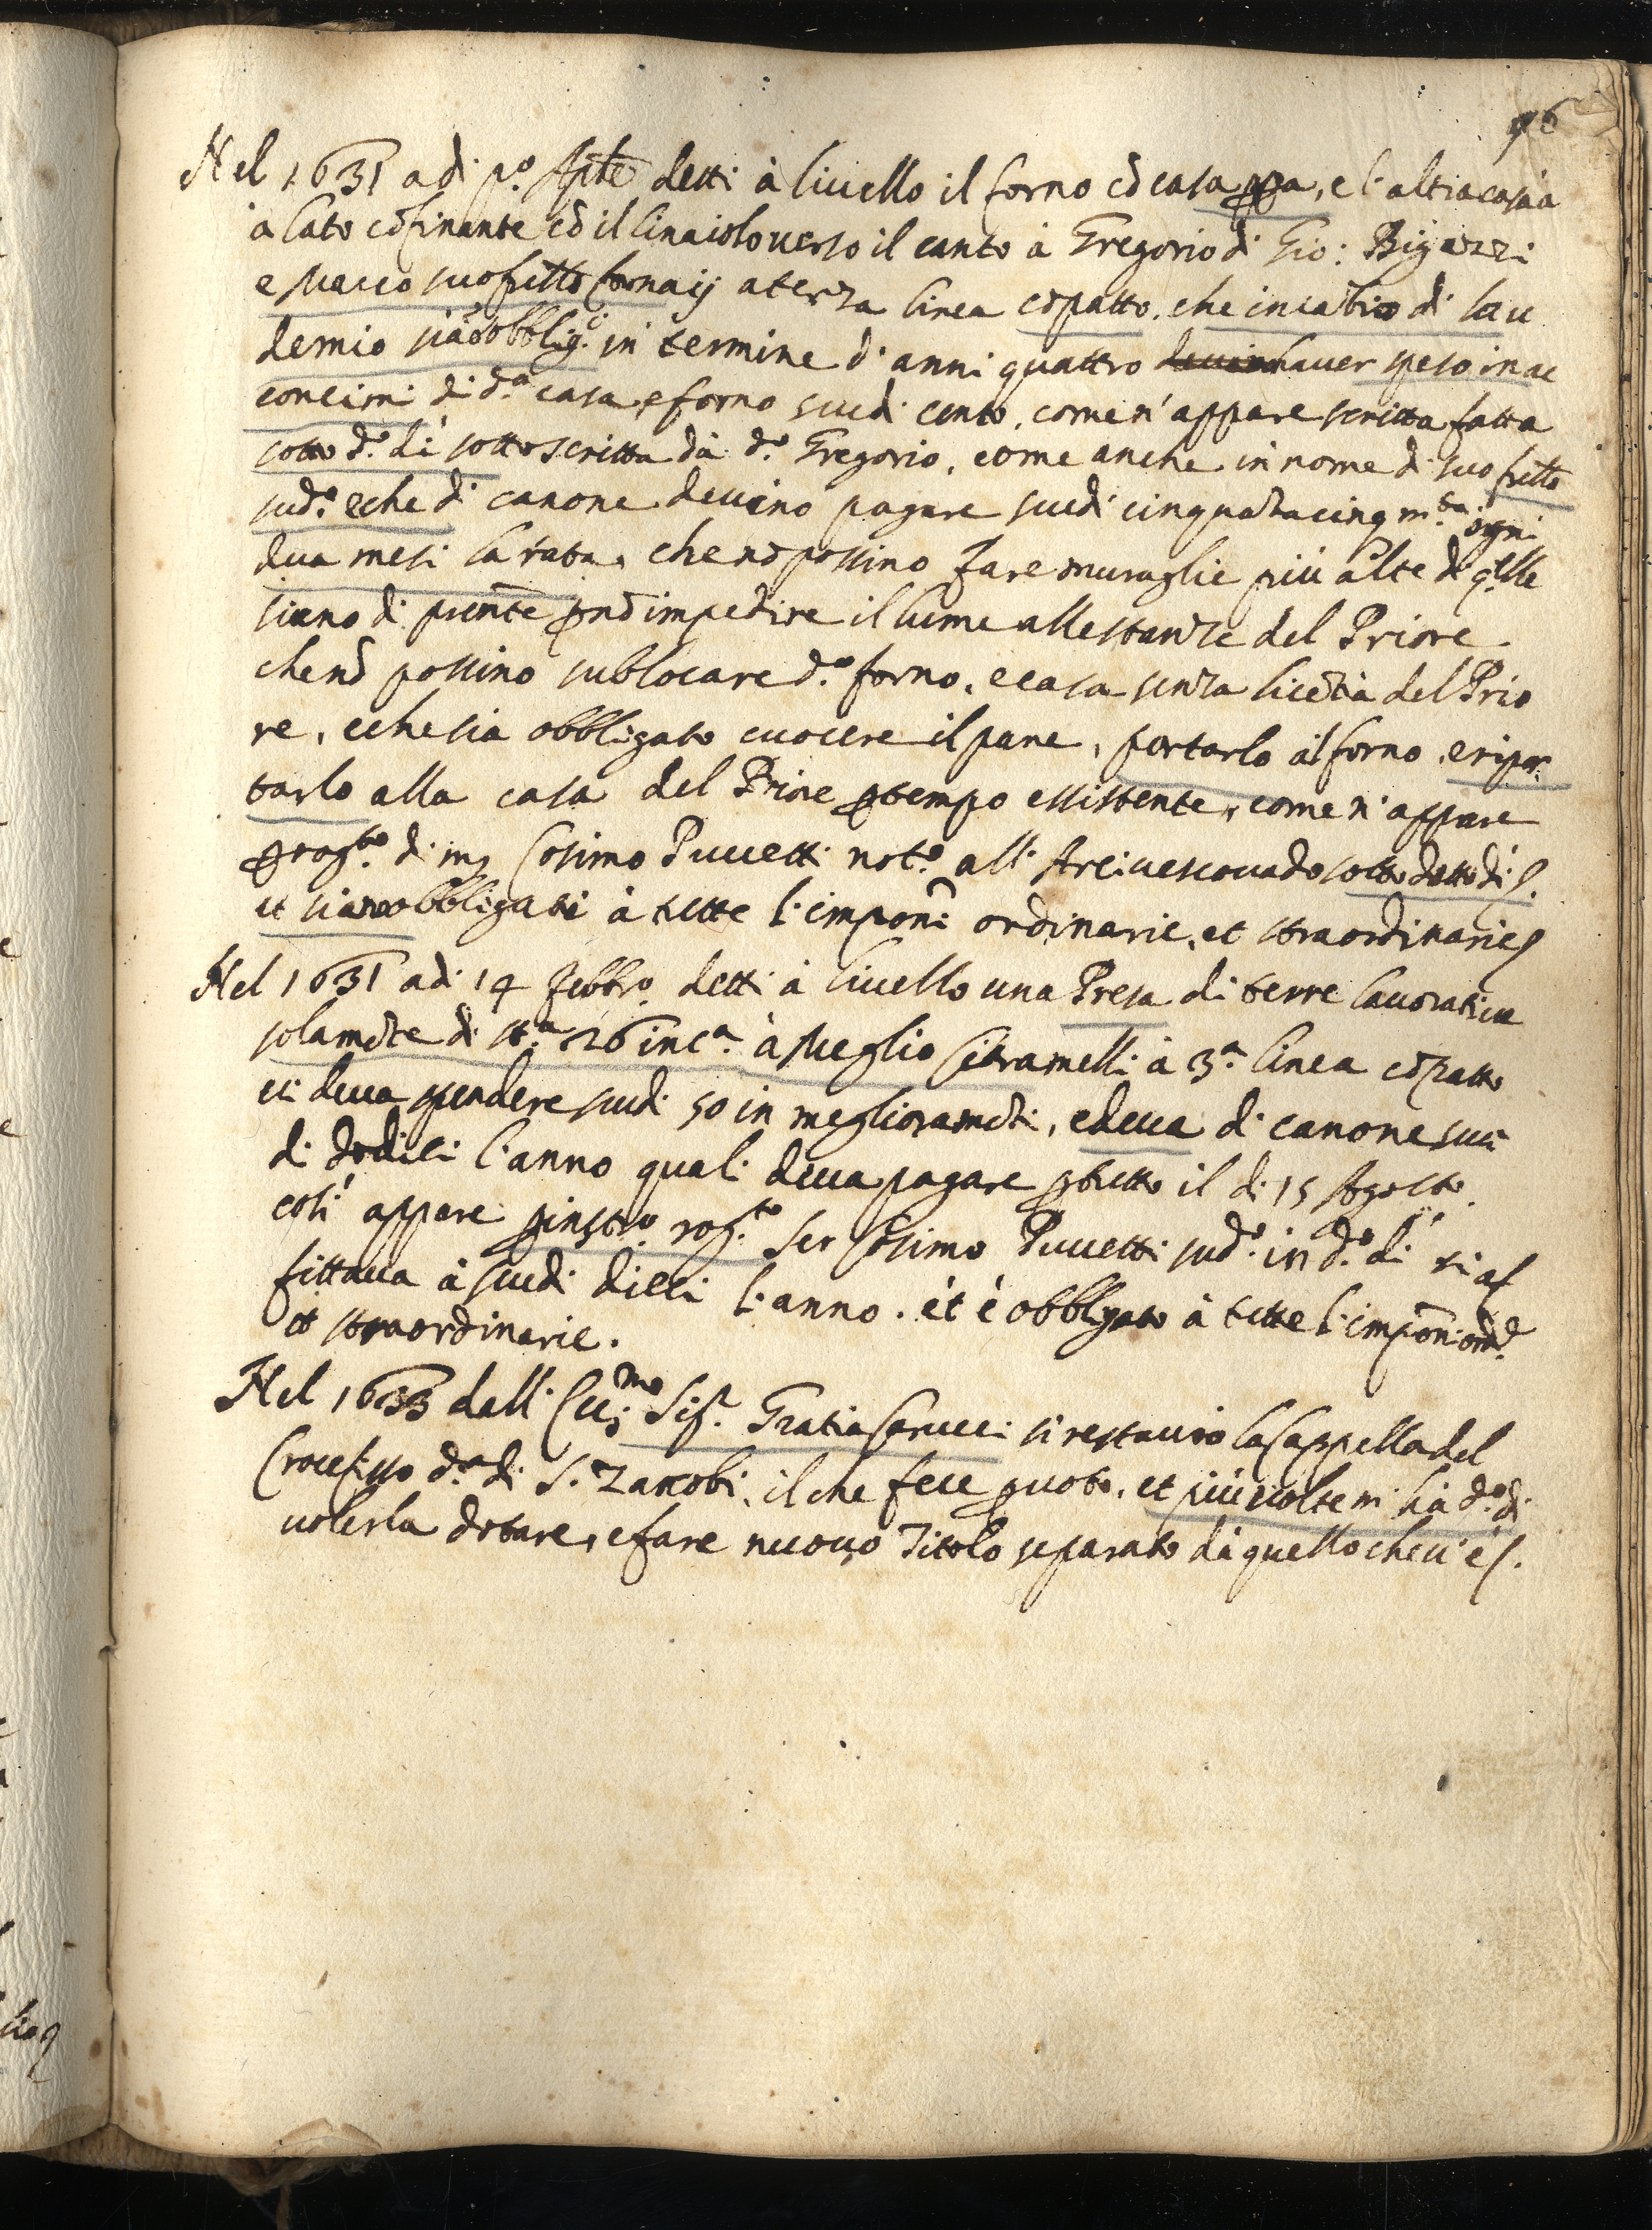 96
Nel 1631 adi p.º Apłe detti à livello il forno cō casa ppa, e l'altra casa à
à lato cōfinante cō il linaiolo verso il canto à Gregorio di Gio: Bigazzi
e Marco suo frełło fornaij a terza linea cō patto, che in cābio di lau
demio sia obblig.ti in termine d'anni quattro haver speso in ac
concimi di d.ª casa, e forno scudi cento, come n'appare scritta fatta
sotto d.º dì sottoscritta dà d.º Gregorio, come anche in nome di suo frełło
sud.º e che di canone devino pagare scudi cinquātacinq m.ta ogni
dua mesi la rata, che nō possino fare muraglie più alte di qłle
sieno di pñte p nō impedire il lume alle stanze del Priore
che nō possino sublocare d.º forno, e casa senza licētia del Prio
re, e che sia obbligato cuocere il pane, portarlo al forno, e ripor
tarlo alla casa del Priore p tempo essistente, come n'appare
p rog.to di m̃ Cosimo Puccetti not.º all'Arcivescovado sotto detto dì
et siano obbligati à tutte l'imponi ordinarie, et straordinarie
Nel 1631 adi 14 Febbr.º detti à livello una Presa di terre lavoratie
solamēte di st.ª 26 inc.ª à Meglio Citramelli à 3.ª linea cō patto
vi deva spendere scudi 50 in miglioramēti, e deva di canone scu
di dodici l'anno quali deva pagare p tutto il dì 15 Agosto.
così appare p instr.º rog.to Ser Cosimo Puccetti sud.º in d.º dì si af
fittava à scudi dieci l'anno. et è obbligato à tutte l'imponi ord.e
et straordinarie.
Nel 1633 dall' Ecc.mo Sig.r Gratia Carucci si restaurò la Cappella del
Crocefisso d.ª di S. Zanobi, il che fece p voto, et più volte m'hà d.º di
volerla dotare, e fare nuovo Titolo separato dà quello che v'è